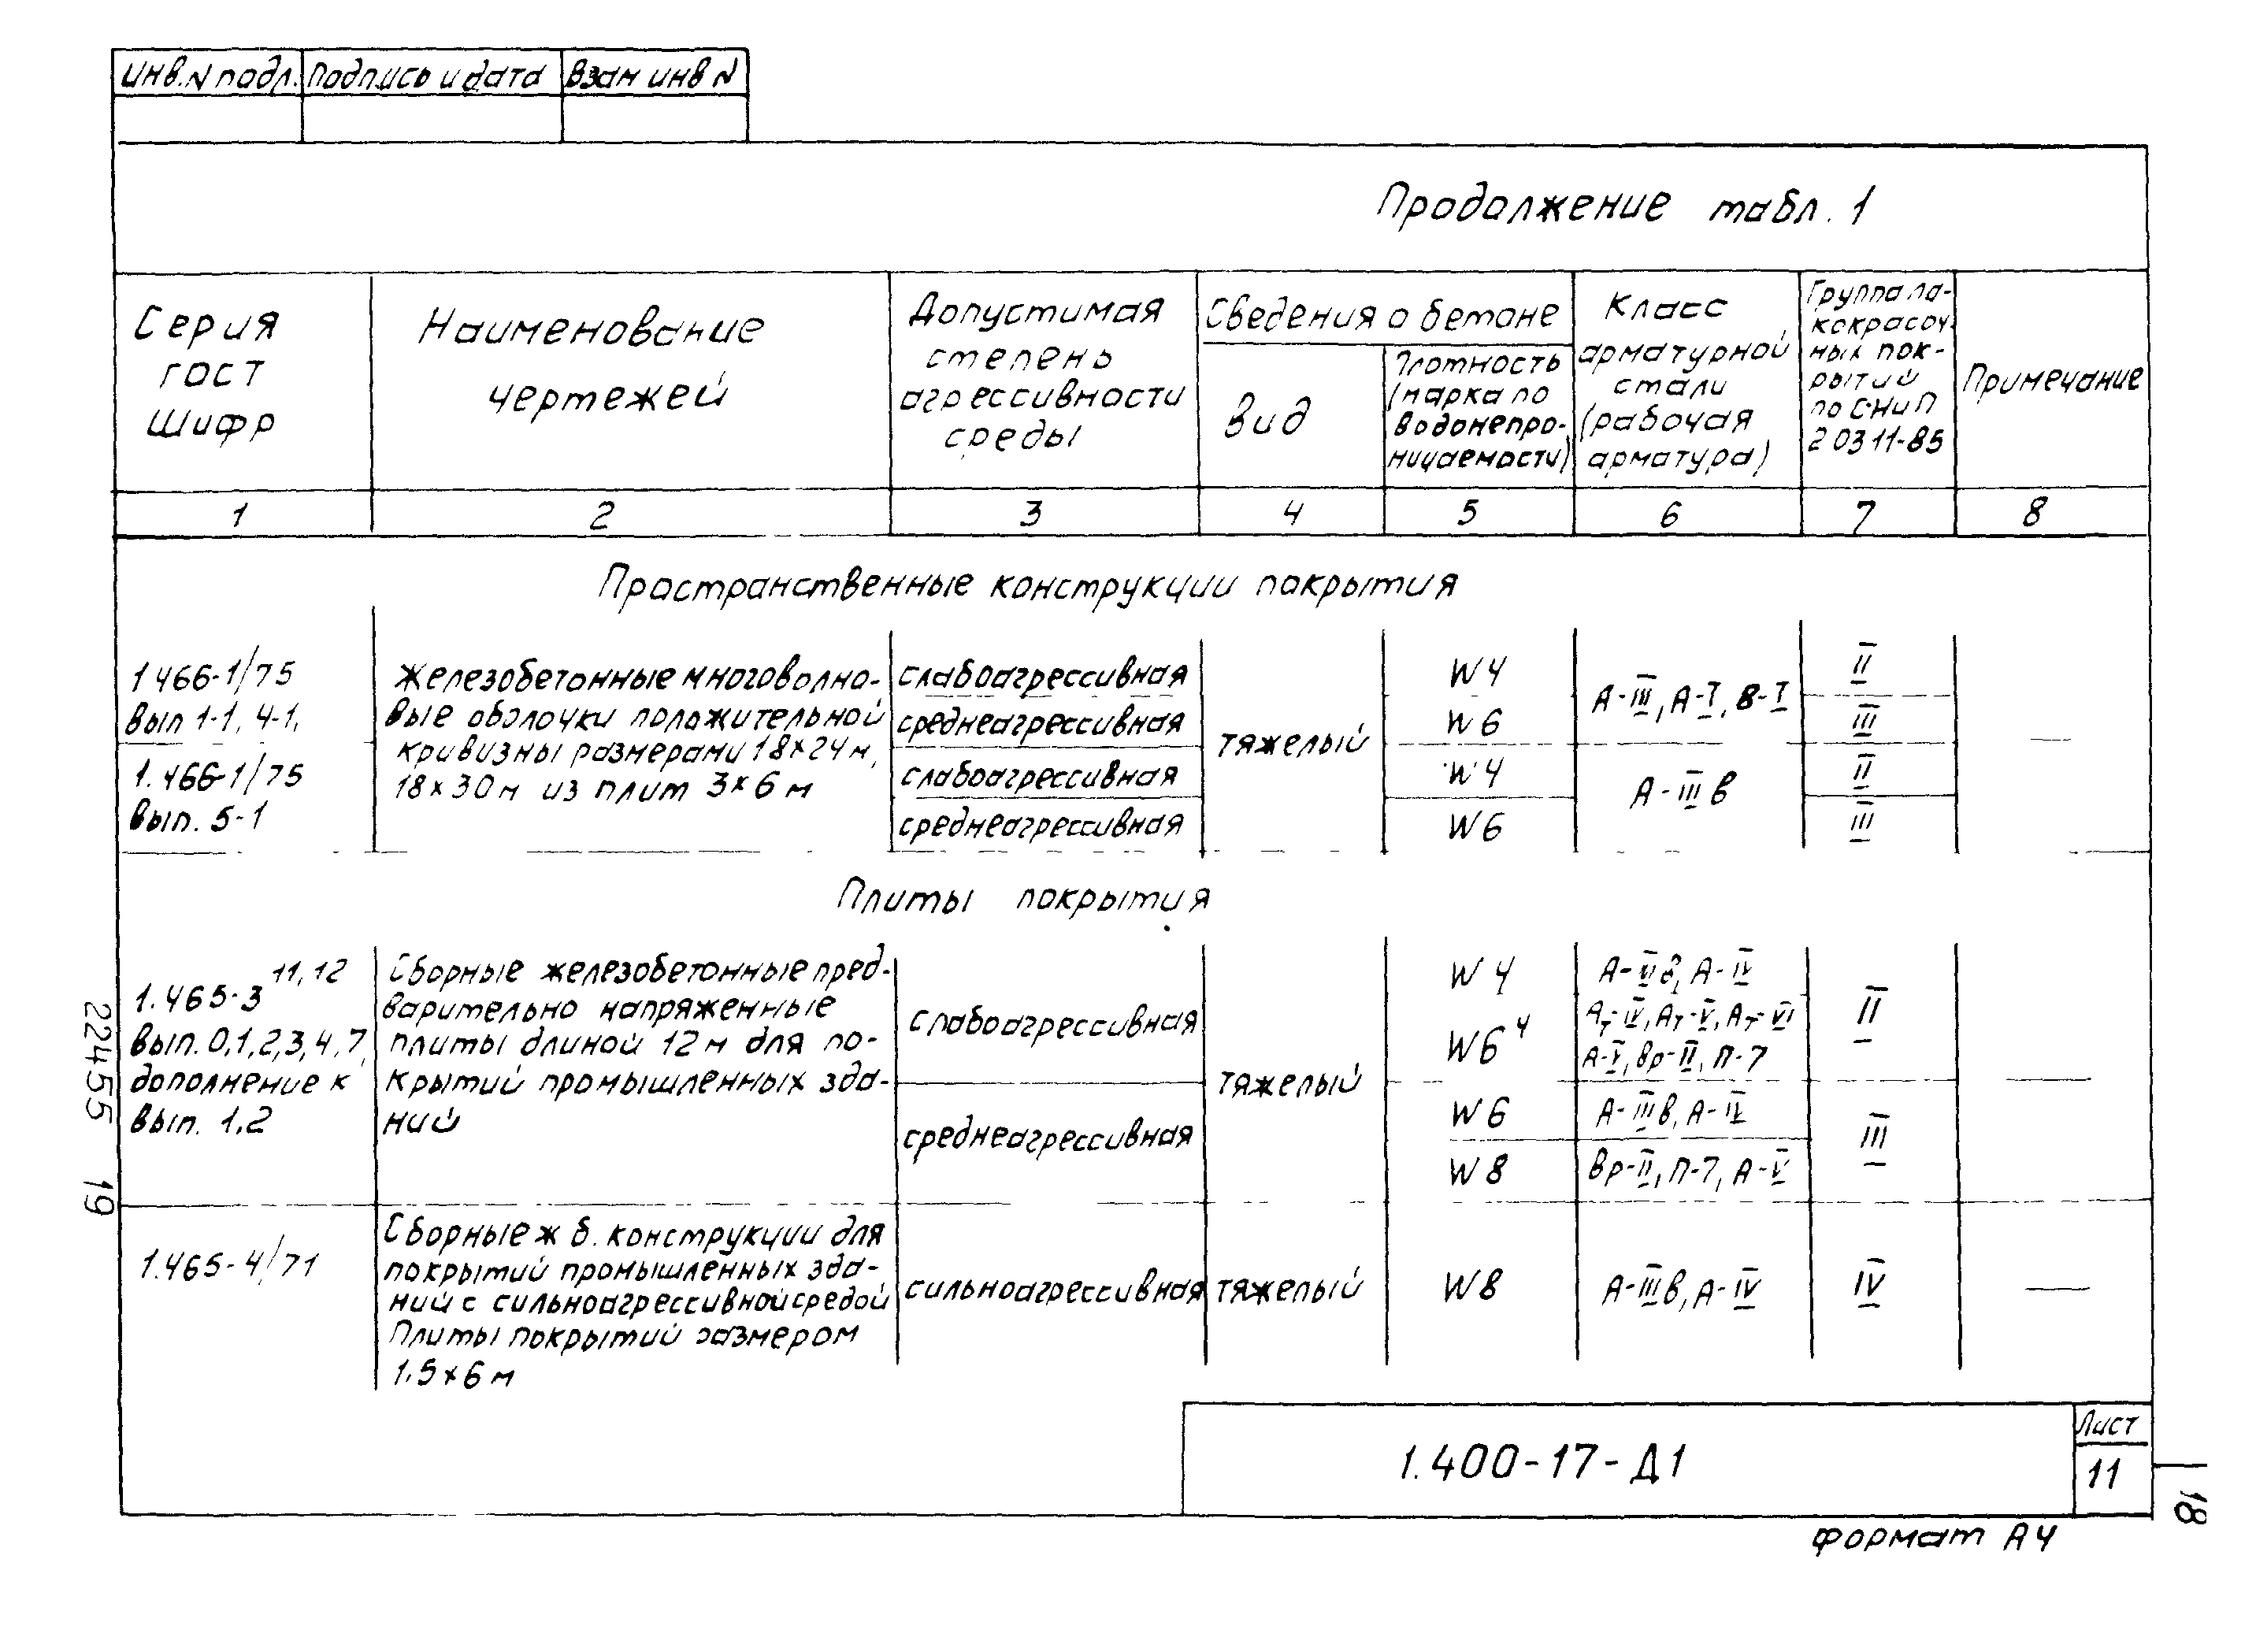 Инв.N подл. Подпись и дата Взам инв N
Продолжение табл. 1
Серия
ГОСТ
Шифр
Наименование
чертежей
Допустимая
степень
агрессивности
среды
Сведения о бетоне
Вид
Плотность
(марка по
водонепро-
ницаемости)
Класс
арматурной
стали
(рабочая
арматура)
Группа ла-
кокрасоч
ных пок-
рытий
по СНиП
2 03 11-85
Примечание
1 2 3 4 5 6 7 8
Пространственные конструкции покрытия
1 466-1/75
Вып 1-1, 4-1,
1.466-1/75
Вып. 5-1
Железобетонные многоволно-
вые оболочки положительной
кривизны размерами 18×24 м,
18×30 м из плит 3×6 м
слабоагрессивная
среднеагрессивная
слабоагрессивная
среднеагрессивная
тяжелый
W 4
W 6
W 4
W 6
А-III, А-I, В-I
А-III в
II
III
II
III
—
Плиты покрытия
1.465-3 11,12
Вып. 0,1,2,3,4,7,
дополнение к
вып. 1,2
Сборные железобетонные пред-
варительно напряженные
плиты длиной 12 м для по-
крытий промышленных зда-
ний
слабоагрессивная
среднеагрессивная
тяжелый
W 4
W6 4
W 6
W 8
А-III в, А-IV
Ат-IV, Ат-V, Ат-VI
А-V, Вр-II, П-7
А-III в, А-IV
Вр-II, П-7, А-V
II
III
—
1.465-4/71
Сборные ж б. конструкции для
покрытий промышленных зда-
ний с сильноагрессивной средой
Плиты покрытий размером
1.5×6 м
сильноагрессивная
тяжелый
W8
А-III в, А-IV
IV
—
1.400-17-Д1
Лист
11
Формат А4
22455 19
18